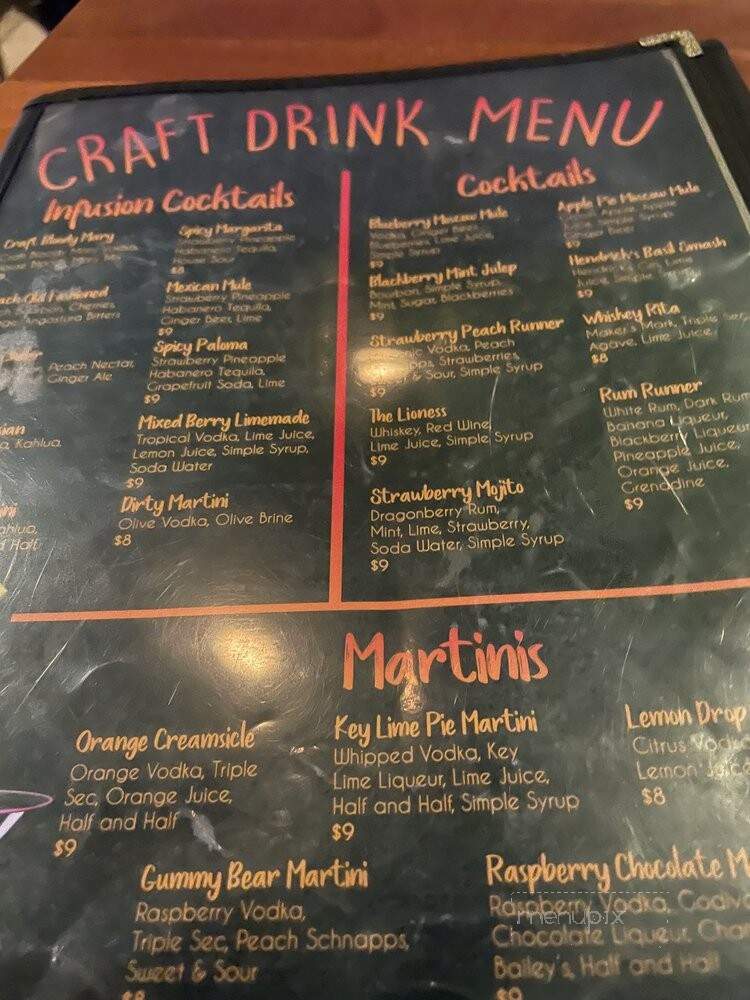 CRAFT DRINK MENU
Infusion Cocktails
Craft Bloody Mary
Old Fashioned
Cherries
Angostura Bitters
Peach Nectar,
Ginger Ale
Kahlua
Spicy Margarita
Pineapple
Tequila,
$8
Mexican Mule
Strawberry Pineapple
Habanero Tequila,
Ginger Beer, Lime
$9
Spicy Paloma
Strawberry Pineapple
Habanero Tequila,
Grapefruit Soda, Lime
$9
Mixed Berry Limemade
Tropical Vodka, Lime Juice,
Lemon Juice, Simple Syrup,
Soda Water
$9
Dirty Martini
Olive Vodka, Olive Brine
$8
Cocktails
Blueberry Moscow Mule
Simple Syrup
$9
Blackberry Mint Julep
Bourbon, Simple Syrup,
Mint, Sugar, Blackberries
$9
Strawberry Peach Runner
Vodka, Peach
Strawberries,
& Sour, Simple Syrup
$9
The Lioness
Whiskey, Red Wine,
Lime Juice, Simple Syrup
$9
Strawberry Mojito
Dragonberry Rum,
Mint, Lime, Strawberry,
Soda Water, Simple Syrup
$9
Apple Pie Moscow Mule
Ginger Beer
$9
Hendrick's Basil Smash
$9
Whiskey Rita
Maker's Mark, Triple Sec,
Agave, Lime Juice,
$8
Rum Runner
White Rum, Dark Rum
Banana Liqueur,
Blackberry Liqueur
Pineapple Juice,
Orange Juice,
Grenadine
$9
Martinis
Orange Creamsicle
Orange Vodka, Triple
Sec, Orange Juice,
Half and Half
$9
Key Lime Pie Martini
Whipped Vodka, Key
Lime Liqueur, Lime Juice,
Half and Half, Simple Syrup
$9
Lemon Drop
Citrus Vodka
Lemon Juice
$8
Gummy Bear Martini
Raspberry Vodka,
Triple Sec, Peach Schnapps,
Sweet & Sour
$8
Raspberry Chocolate M
Raspberry Vodka, Godiva
Chocolate Liqueur,
Bailey's, Half and Half
$9
menupix